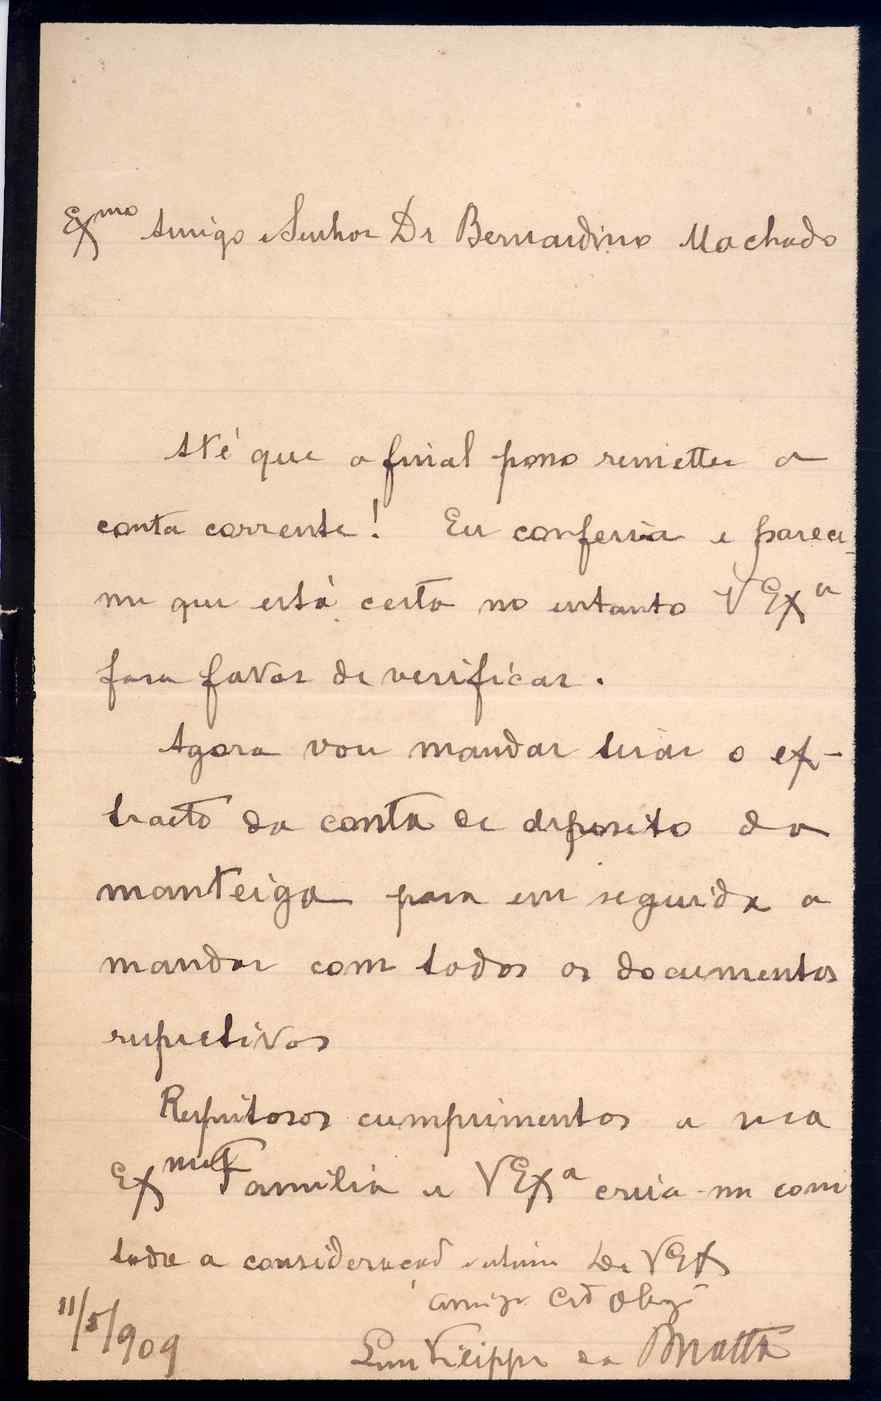 Exmo Amigo e Senhor Dr Bernardino Machado
Até que afinal posso remetter a
conta corrente! Eu conferia e parece-
me que está certa no entanto VExª
fara favor de verificar.
Agora vou mandar tirar o ex-
tracto da conta de deposito da
manteiga para em seguida a
mandar com todos os documentos
respectivos
Respeitosos cumprimentos a sua
Exma Familia e VExª creia-me com
toda a consideração e estima De VEx
amigo Crdo Obrgo
Luiz Filippe da Matta
11/5/909